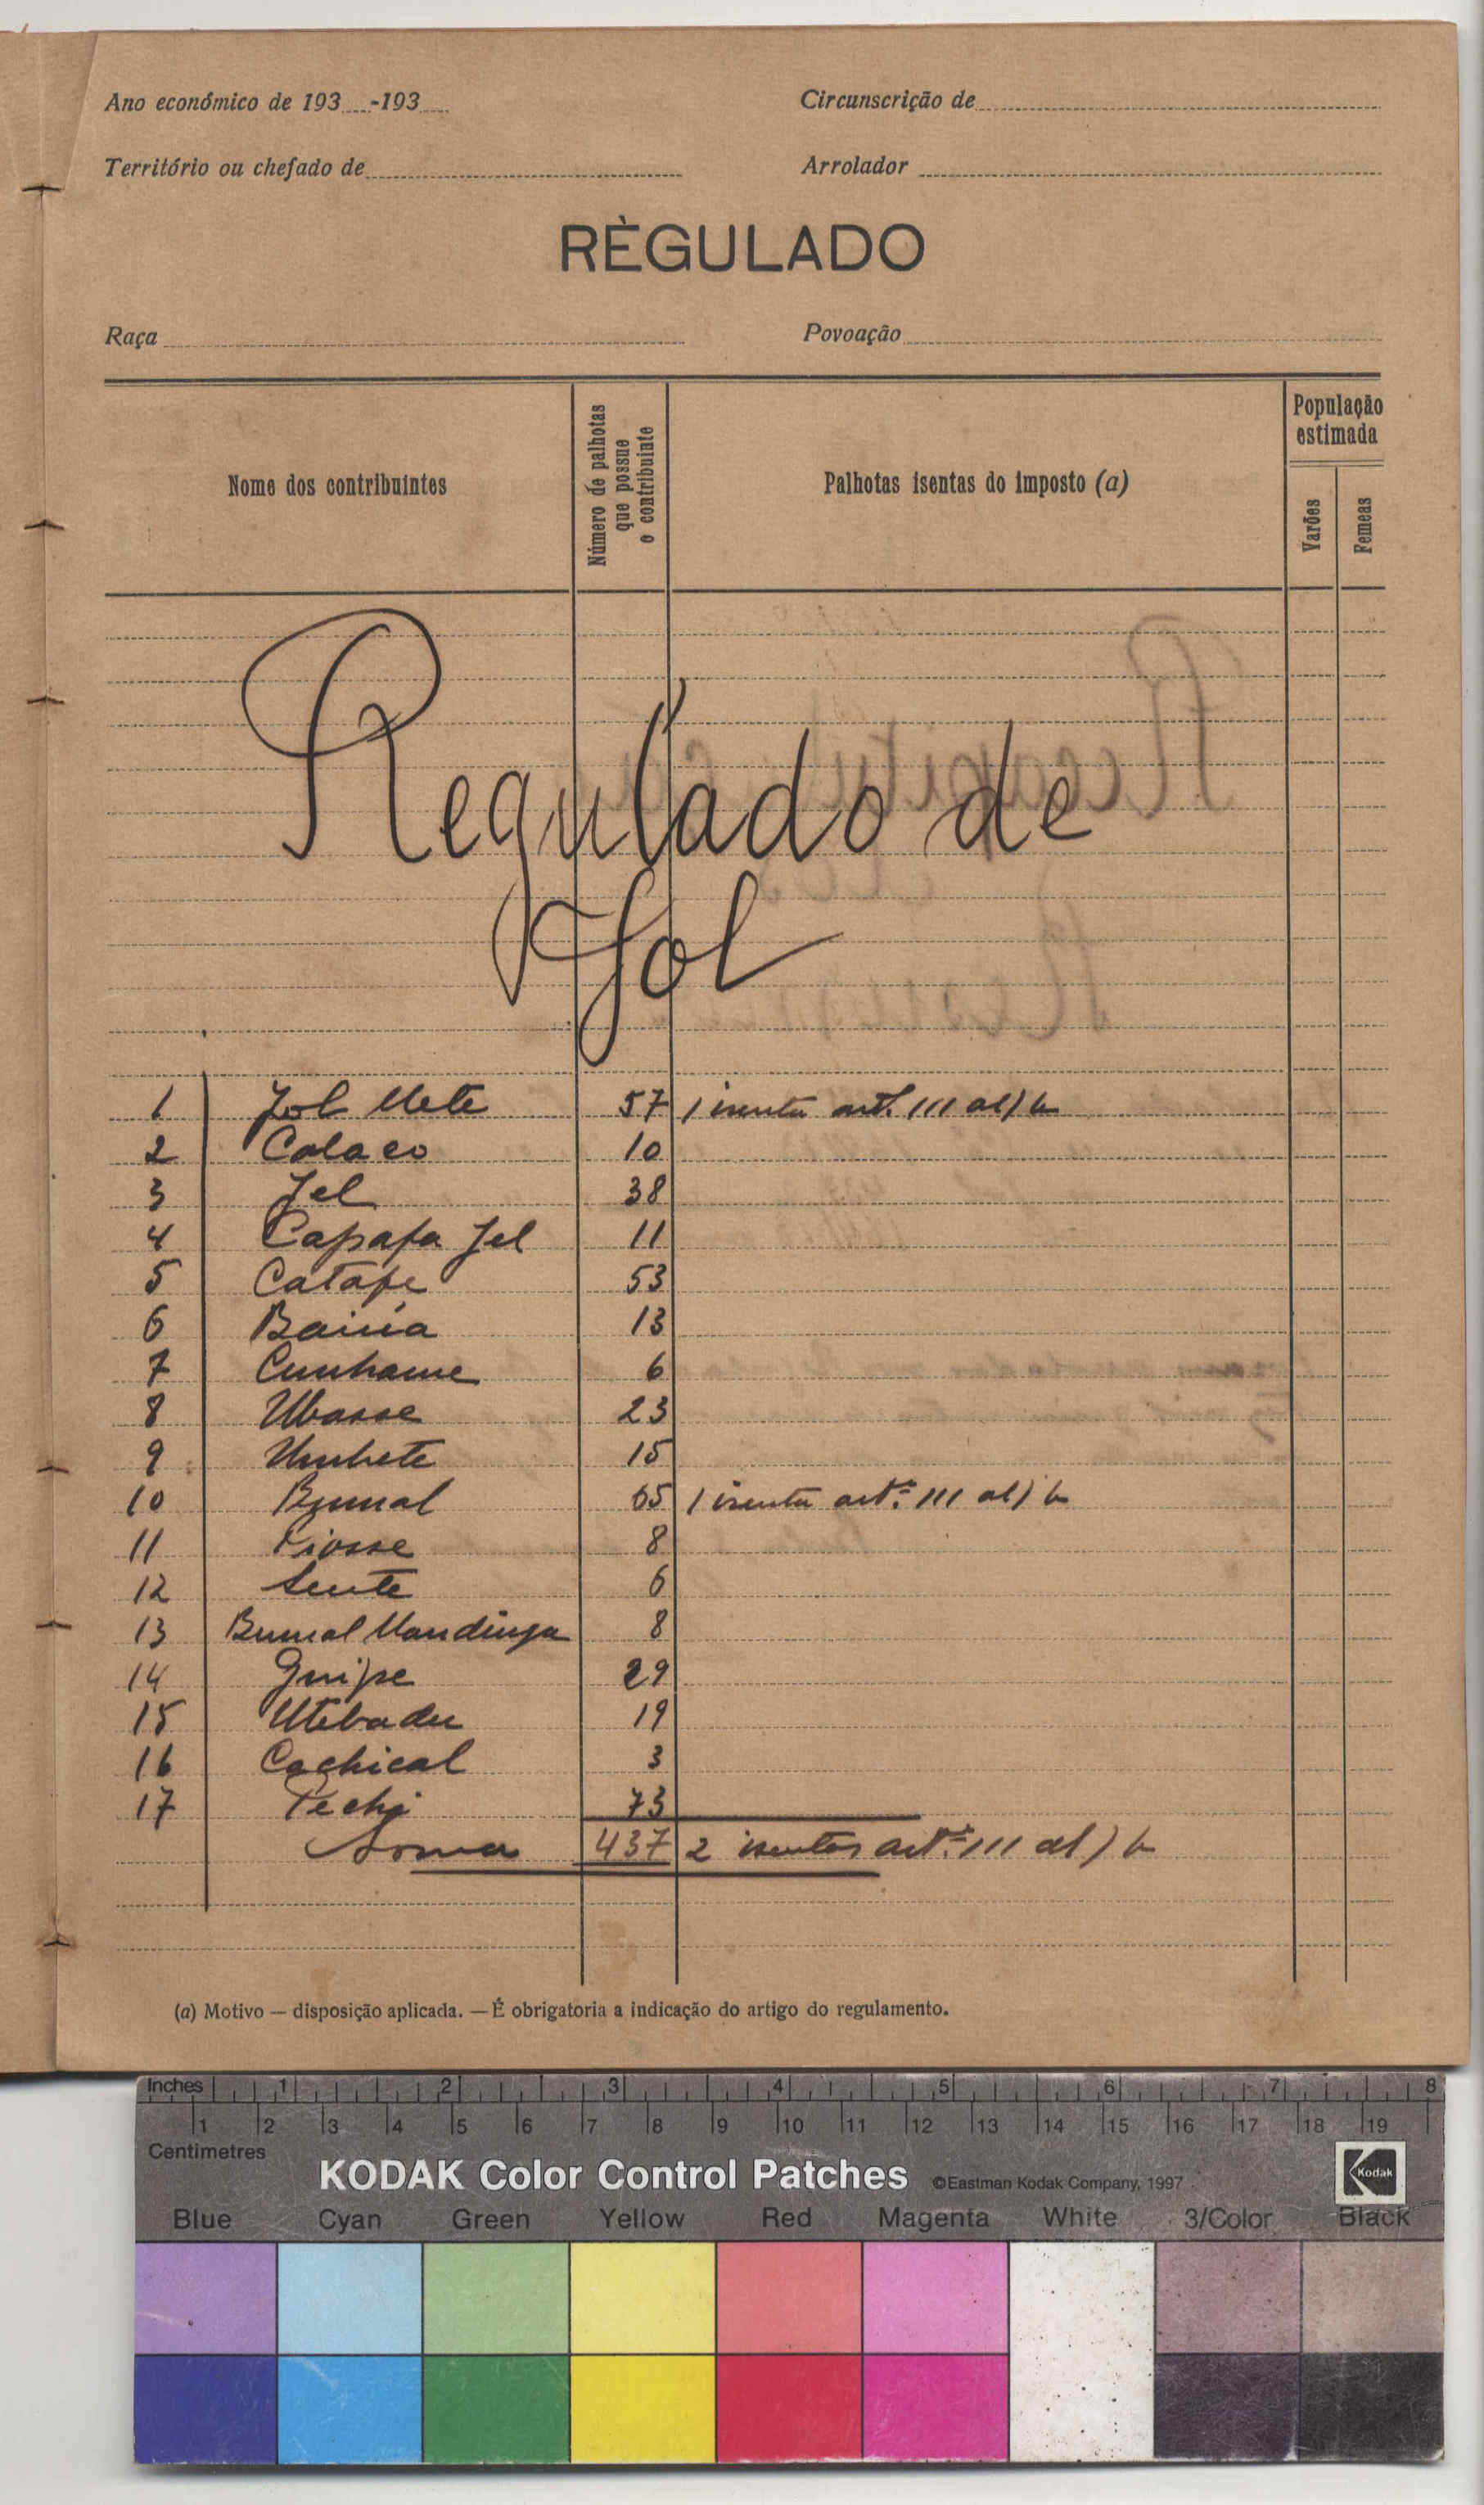 Ano económico de 193 -193
Circunscrição de
Território ou chefado de
Arrolador
RÈGULADO
Raça
Povoação
Nome dos contribuintes
Número de palhotas
que possue
o contribuinte
Palhotas isentas do imposto (a)
População
estimada
Varões
Femeas
Regulado de
Jol
1 Jol Mete 57 1 isenta art. 111 al) b
2 Calaco 10
3 Jel 38
4 Capafa Jel 11
5 Catafe 53
6 Bainia 13
7 Cunhame 6
8 Ubasse 23
9 15
10 Bgumal 65 1 isenta artº 111 al) b
11 8
12 Sente 6
13 Bumal Mandinga 8
14 Guipe 29
15 Utibadu 19
16 Cachical 3
17 Pechi 73
Soma 437 2 isentas artº 111 al) b
(a) Motivo — disposição aplicada. — É obrigatoria a indicação do artigo do regulamento.
Inches 1 2 3 4 5 6 7 8
1 2 3 4 5 6 7 8 9 10 11 12 13 14 15 16 17 18 19
Centimetres
KODAK Color Control Patches ©Eastman Kodak Company, 1997
Kodak
Blue Cyan Green Yellow Red Magenta White 3/Color Black